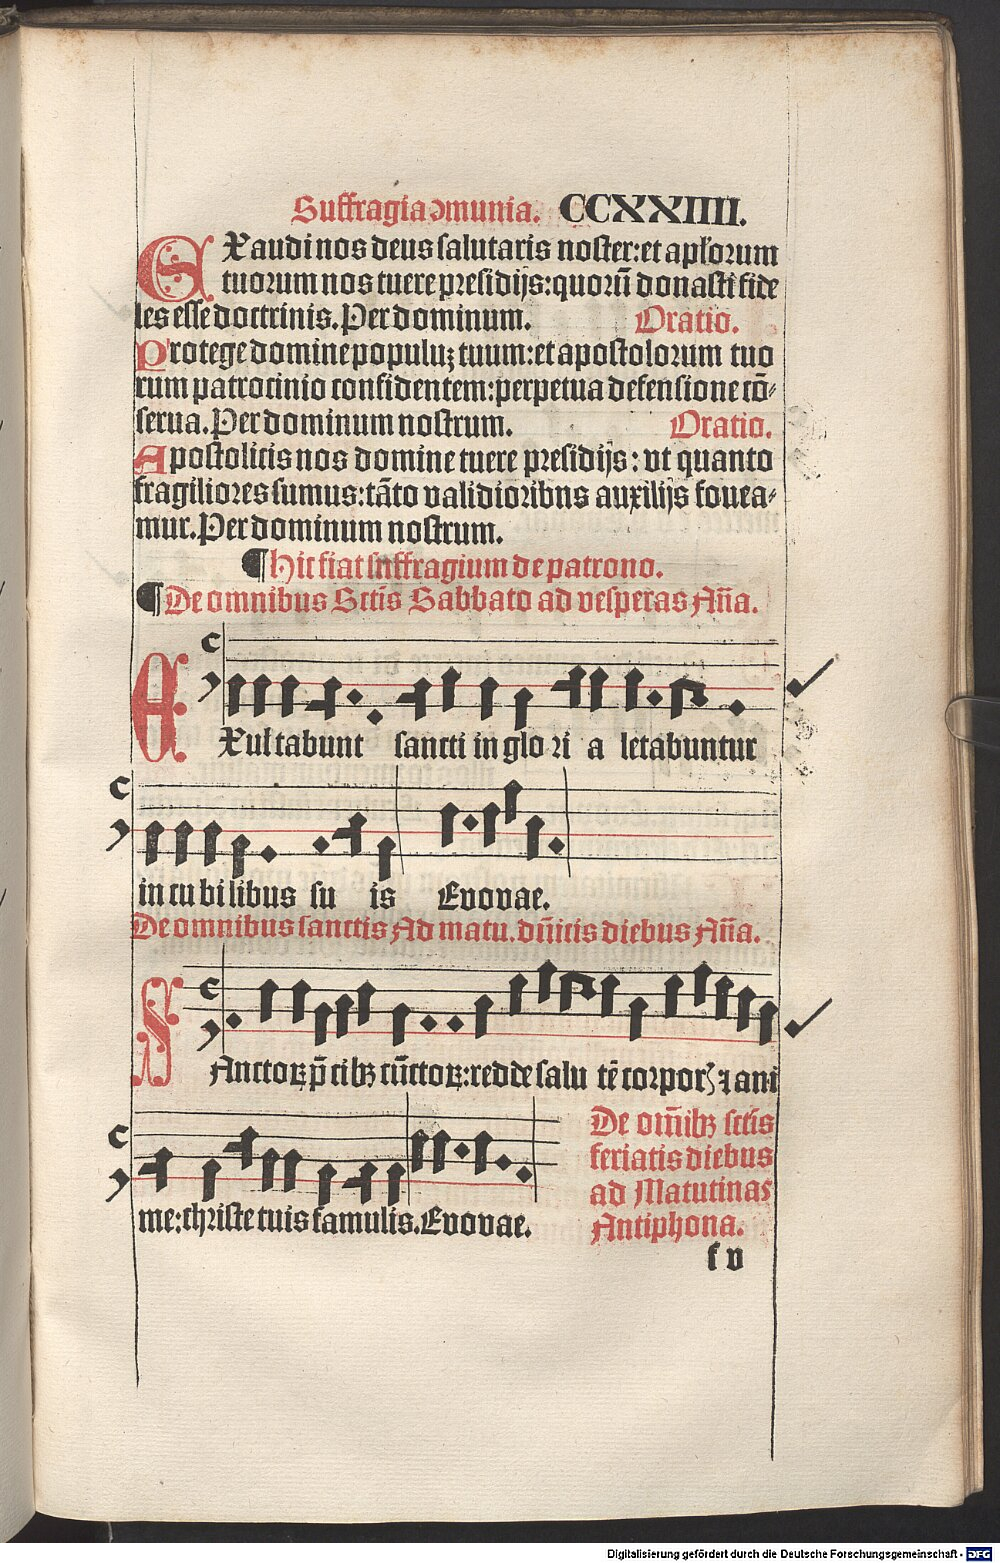 Suffragia ↄmunia. CCXXIIII.
EXaudi nos deus salutaris noster: et aplorum
tuorum nos tuere presidijs: quorū donasti fide
les esse doctrinis. Per dominum. Oratio.
Protege domine populuꝫ tuum: et apostolorum tuo
rum patrocinio confidentem: perpetua defensione cō⸗
serua. Per dominum nostrum. Oratio.
Apostolicis nos domine tuere presidijs: vt quanto
fragiliores sumus: tāto validioribns auxilijs fovea⸗
mur. Per dominum nostrum.
¶ Hic fiat suffragium de patrono.
¶ De omnibus Sctīs Sabbato ad vesperas Añа.
EXultabunt sancti in glo ri a letabuntur
in cu bi libus su is Evovae.
De omnibus sanctis Ad matu. dn̄icis diebus Aña.
SAnctoꝝ p̄cibꝫ cūctoꝝ: redde salu tē corporꝭ ⁊ ani
me: christe tuis famulis. Evovae.
De om̄ibꝫ sctīs
feriatis diebus
ad Matutinas
Antiphona.
f v
Digitalisierung gefördert durch die Deutsche Forschungsgemeinschaft - DFG